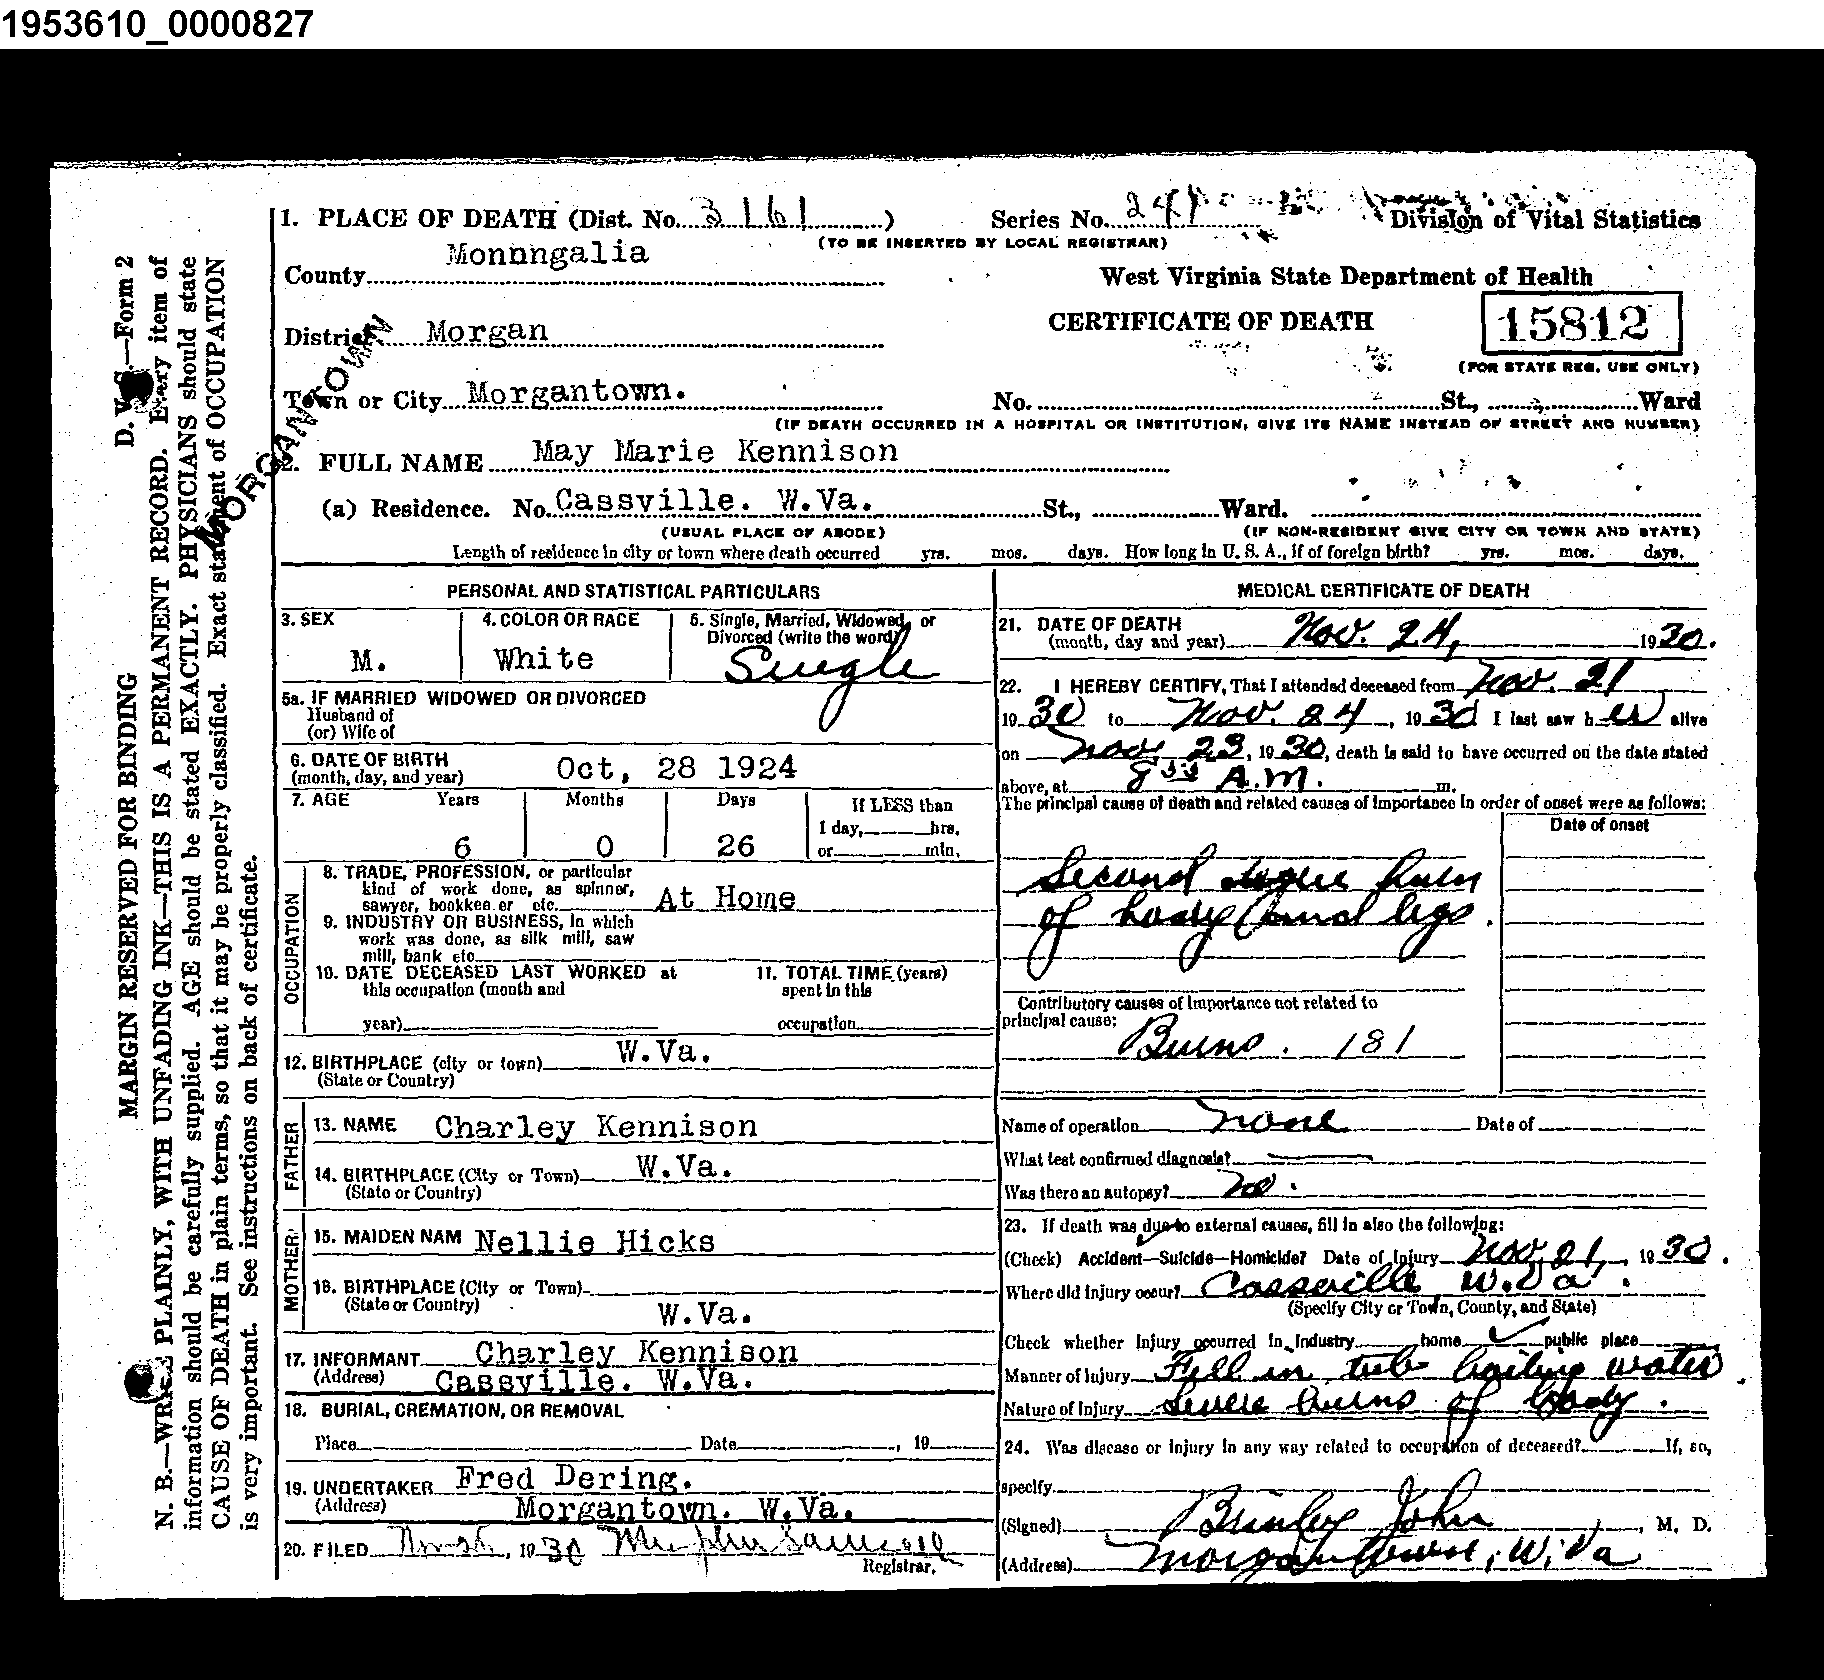 1953610_0000827
1. PLACE OF DEATH (Dist. No. 3161)
Series No. 241
Division of Vital Statistics
(TO BE INSERTED BY LOCAL REGISTRAR)
County Monnngalia
West Virginia State Department of Health
District Morgan
CERTIFICATE OF DEATH
15812
(FOR STATE REG. USE ONLY)
MORGANTOWN
Town or City Morgantown.
No. St., Ward
(IF DEATH OCCURRED IN A HOSPITAL OR INSTITUTION, GIVE ITS NAME INSTEAD OF STREET AND NUMBER)
2. FULL NAME May Marie Kennison
(a) Residence. No. Cassville. W.Va. St., Ward.
(USUAL PLACE OF ABODE) (IF NON-RESIDENT GIVE CITY OR TOWN AND STATE)
Length of residence in city or town where death occurred yrs. mos. days. How long in U. S. A., if of foreign birth? yrs. mos. days.
PERSONAL AND STATISTICAL PARTICULARS
3. SEX M.
4. COLOR OR RACE White
5. Single, Married, Widowed, or
Divorced (write the word) Single
5a. IF MARRIED WIDOWED OR DIVORCED
Husband of
(or) Wife of
6. DATE OF BIRTH
(month, day, and year) Oct, 28 1924
7. AGE Years Months Days If LESS than
1 day, hrs.
6 0 26 or min.
OCCUPATION
8. TRADE, PROFESSION, or particular
kind of work done, as spinner,
sawyer, bookkee er etc. At Home
9. INDUSTRY OR BUSINESS, in which
work was done, as silk mill, saw
mill, bank etc.
10. DATE DECEASED LAST WORKED at
this occupation (month and
year)
11. TOTAL TIME (years)
spent in this
occupation
12. BIRTHPLACE (city or town) W.Va.
(State or Country)
FATHER
13. NAME Charley Kennison
14. BIRTHPLACE (City or Town) W.Va.
(State or Country)
MOTHER
15. MAIDEN NAM Nellie Hicks
16. BIRTHPLACE (City or Town)
(State or Country) W.Va.
17. INFORMANT Charley Kennison
(Address) Cassville. W.Va.
18. BURIAL, CREMATION, OR REMOVAL
Place Date , 19
19. UNDERTAKER Fred Dering.
(Address) Morgantown. W.Va.
20. FILED , 1930
Registrar.
MEDICAL CERTIFICATE OF DEATH
21. DATE OF DEATH
(month, day and year) Nov. 24, 1930.
22. I HEREBY CERTIFY, That I attended deceased from Nov. 21
1930 to Nov. 24, 1930 I last saw her alive
on Nov. 23, 1930, death is said to have occurred on the date stated
above, at 8 55 A.M. m.
The principal cause of death and related causes of importance in order of onset were as follows:
Date of onset
Second degree burn
of body and legs.
Contributory causes of importance not related to
principal cause:
Burns. 181
Name of operation none Date of
What test confirmed diagnosis?
Was there an autopsy? no.
23. If death was due to external causes, fill in also the following:
(Check) Accident—Suicide—Homicide? Date of Injury Nov 21, 1930.
Where did injury occur? Cassville W.Va.
(Specify City or Town, County, and State)
Check whether injury occurred in industry home ✓ public place
Manner of Injury Fell in tub boiling water
Nature of Injury Severe burns of body.
24. Was disease or injury in any way related to occupation of deceased? If, so,
specify
(Signed) Brinley John, M. D.
(Address) Morgantown, W.Va
D. V. S.—Form 2
MARGIN RESERVED FOR BINDING
N. B.—WRITE PLAINLY, WITH UNFADING INK—THIS IS A PERMANENT RECORD. Every item of
information should be carefully supplied. AGE should be stated EXACTLY. PHYSICIANS should state
CAUSE OF DEATH in plain terms, so that it may be properly classified. Exact statement of OCCUPATION
is very important. See instructions on back of certificate.